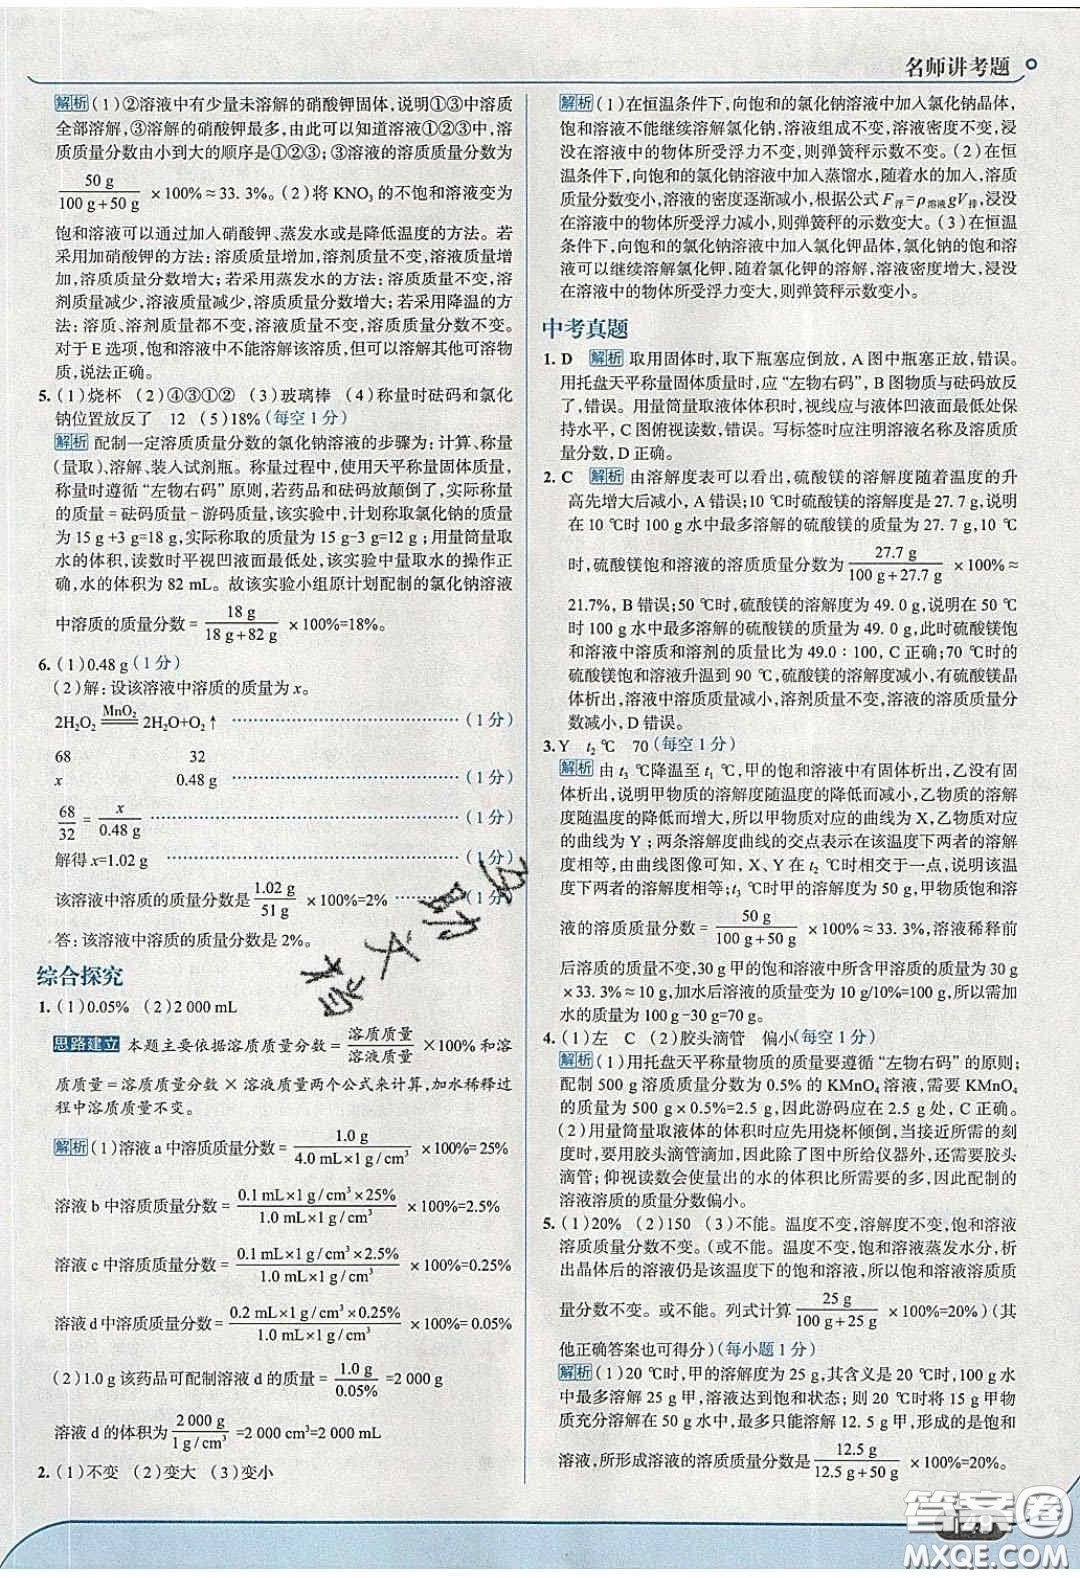 名师讲考题
解析 (1)②溶液中有少量未溶解的硝酸钾固体,说明①③中溶质
全部溶解,③溶解的硝酸钾最多,由此可以知道溶液①②③中,溶
质质量分数由小到大的顺序是①②③;③溶液的溶质质量分数为
50 g/(100 g+50 g) ×100%≈33.3%。(2)将 KNO₃ 的不饱和溶液变为
饱和溶液可以通过加入硝酸钾、蒸发水或是降低温度的方法。若
采用加硝酸钾的方法:溶质质量增加,溶剂质量不变,溶液质量增
加,溶质质量分数增大;若采用蒸发水的方法:溶质质量不变,溶
剂质量减少,溶液质量减少,溶质质量分数增大;若采用降温的方
法:溶质、溶剂质量都不变,溶液质量不变,溶质质量分数不变。
对于 E 选项,饱和溶液中不能溶解该溶质,但可以溶解其他可溶物
质,说法正确。
5. (1)烧杯 (2)④③①② (3)玻璃棒 (4)称量时砝码和氯化
钠位置放反了 12 (5)18%(每空1分)
解析 配制一定溶质质量分数的氯化钠溶液的步骤为:计算、称量
(量取)、溶解、装入试剂瓶。称量过程中,使用天平称量固体质量,
称量时遵循“左物右码”原则,若药品和砝码放颠倒了,实际称量
的质量=砝码质量-游码质量,该实验中,计划称取氯化钠的质量
为 15 g+3 g=18 g,实际称取的质量为 15 g-3 g=12 g;用量筒量取
水的体积,读数时平视凹液面最低处,该实验中量取水的操作正
确,水的体积为 82 mL。故该实验小组原计划配制的氯化钠溶液
中溶质的质量分数= 18 g/(18 g+82 g) ×100%=18%。
6. (1)0.48 g(1分)
(2)解:设该溶液中溶质的质量为 x。
2H₂O₂ =MnO₂= 2H₂O+O₂↑ (1分)
68 32
x 0.48 g (1分)
68/32 = x/0.48 g (1分)
解得 x=1.02 g (1分)
该溶液中溶质的质量分数是 1.02 g/51 g ×100%=2% (1分)
答:该溶液中溶质的质量分数是 2%。
综合探究
1. (1)0.05% (2)2 000 mL
思路建立 本题主要依据溶质质量分数= 溶质质量/溶液质量 ×100% 和溶
质质量=溶质质量分数×溶液质量两个公式来计算,加水稀释过
程中溶质质量不变。
解析 (1)溶液 a 中溶质质量分数= 1.0 g/(4.0 mL×1 g/cm³) ×100%=25%
溶液 b 中溶质质量分数= (0.1 mL×1 g/cm³×25%)/(1.0 mL×1 g/cm³) ×100%=2.5%
溶液 c 中溶质质量分数= (0.1 mL×1 g/cm³×2.5%)/(1.0 mL×1 g/cm³) ×100%=0.25%
溶液 d 中溶质质量分数= (0.2 mL×1 g/cm³×0.25%)/(1.0 mL×1 g/cm³) ×100%=0.05%
(2)1.0 g 该药品可配制溶液 d 的质量= 1.0 g/0.05% =2 000 g
溶液 d 的体积为 2 000 g/(1 g/cm³) =2 000 cm³=2 000 mL
2. (1)不变 (2)变大 (3)变小
解析 (1)在恒温条件下,向饱和的氯化钠溶液中加入氯化钠晶体,
饱和溶液不能继续溶解氯化钠,溶液组成不变,溶液密度不变,浸
没在溶液中的物体所受浮力不变,则弹簧秤示数不变。(2)在恒
温条件下,向饱和的氯化钠溶液中加入蒸馏水,随着水的加入,溶
质质量分数变小,溶液的密度逐渐减小,根据公式 F浮=ρ溶液gV排,浸没
在溶液中的物体所受浮力减小,则弹簧秤的示数变大。(3)在恒温
条件下,向饱和的氯化钠溶液中加入氯化钾晶体,氯化钠的饱和溶
液可以继续溶解氯化钾,随着氯化钾的溶解,溶液密度增大,浸没
在溶液中的物体所受浮力变大,则弹簧秤示数变小。
中考真题
1. D 解析 取用固体时,取下瓶塞应倒放,A 图中瓶塞正放,错误。
用托盘天平称量固体质量时,应“左物右码”,B 图物质与砝码放反
了,错误。用量筒量取液体体积时,视线应与液体凹液面最低处保
持水平,C 图俯视读数,错误。写标签时应注明溶液名称及溶质质
量分数,D 正确。
2. C 解析 由溶解度表可以看出,硫酸镁的溶解度随着温度的升
高先增大后减小,A 错误;10 ℃时硫酸镁的溶解度是 27.7 g,说明
在 10 ℃时 100 g 水中最多溶解的硫酸镁的质量为 27.7 g,10 ℃
时,硫酸镁饱和溶液的溶质质量分数为 27.7 g/(100 g+27.7 g) ×100%≈
21.7%,B 错误;50 ℃时,硫酸镁的溶解度为 49.0 g,说明在 50 ℃
时 100 g 水中最多溶解的硫酸镁的质量为 49.0 g,此时硫酸镁饱
和溶液中溶质和溶剂的质量比为 49.0∶100,C 正确;70 ℃时的
硫酸镁饱和溶液升温到 90 ℃,硫酸镁的溶解度减小,有硫酸镁晶
体析出,溶液中溶质质量减小,溶剂质量不变,溶液的溶质质量分
数减小,D 错误。
3. Y t₂ ℃ 70(每空1分)
解析 由 t₃ ℃降温至 t₁ ℃,甲的饱和溶液中有固体析出,乙没有固
体析出,说明甲物质的溶解度随温度的降低而减小,乙物质的溶解
度随温度的降低而增大,所以甲物质对应的曲线为 X,乙物质对应
的曲线为 Y;两条溶解度曲线的交点表示在该温度下两者的溶解
度相等,由曲线图像可知,X、Y 在 t₂ ℃时相交于一点,说明该温
度下两者的溶解度相等;t₃ ℃时甲的溶解度为 50 g,甲物质饱和溶
液的溶质质量分数= 50 g/(100 g+50 g) ×100%≈33.3%,溶液稀释前
后溶质的质量不变,30 g 甲的饱和溶液中所含甲溶质的质量为 30 g
×33.3%≈10 g,加水后溶液的质量变为 10 g/10%=100 g,所以需加
水的质量为 100 g-30 g=70 g。
4. (1)左 C (2)胶头滴管 偏小(每空1分)
解析 (1)用托盘天平称量物质的质量要遵循“左物右码”的原则;
配制 500 g 溶质质量分数为 0.5% 的 KMnO₄ 溶液,需要 KMnO₄
的质量为 500 g×0.5%=2.5 g,因此游码应在 2.5 g 处,C 正确。
(2)用量筒量取液体的体积时应先用烧杯倾倒,当接近所需的刻
度时,要用胶头滴管滴加,因此除了图中所给仪器外,还要有胶头
滴管;仰视读数会使量出的水的体积比所需的大,因此配制的
溶液溶质的质量分数偏小。
5. (1)20% (2)150 (3)不能。温度不变,溶解度不变,饱和溶液
溶质质量分数不变。(或不能。温度不变,饱和溶液蒸发水分,析
出晶体后的溶液仍是该温度下的饱和溶液,所以饱和溶液溶质质
量分数不变。或不能。列式计算 25 g/(100 g+25 g) ×100%=20%)(其
他正确答案也可得分)(每小题1分)
解析 (1)20 ℃时,甲的溶解度为 25 g,其含义是 20 ℃时,100 g 水
中最多溶解 25 g 甲,溶液达到饱和状态;则 20 ℃时将 15 g 甲物
质充分溶解在 50 g 水中,最多只能溶解 12.5 g 甲,形成的是饱和
溶液,所形成溶液的溶质质量分数是 12.5 g/(12.5 g+50 g) ×100%=20%。
答案圈
MXQE.COM